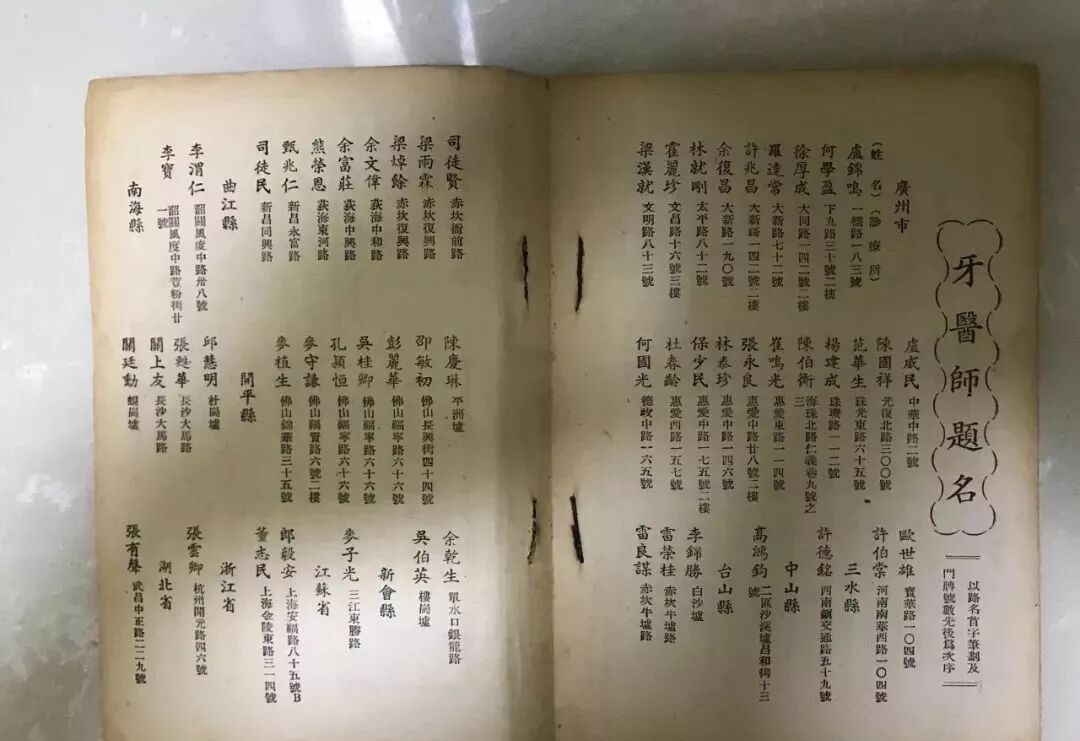 牙醫師題名
以路名首字筆劃及
門牌號數先後為次序
廣州市
（姓 名）（診療所）
盧錦鳴 一德路一八三號
何學盈 下九路三十號二樓
徐厚成 大同路一四二號二樓
羅達常 大新路七十二號
許兆昌 大新路一四二號二樓
余復昌 大新路一九〇號
林就剛 太平路八十二號
霍麗珍 文昌路十六號三樓
梁漢就 文明路八十三號
盧威民 中華中路二號
陳國祥 光復北路三〇〇號
范華生 珠光東路六十五號
楊建成 珠璣路一一二號
陳伯衡 海珠北路仁義巷九號之三
崔鳴光 惠愛東路一一四號
張永良 惠愛中路廿八號二樓
林泰珍 惠愛中路一四六號
保少民 惠愛中路一七五號二樓
杜春齡 惠愛西路一五七號
何國光 德政中路一六五號
歐世雄 寶華路一〇四號
許伯棠 河南南華西路一〇四號
三水縣
許德銘 西南鎮交通路五十九號
中山縣
高鴻鈞 二區沙溪墟昌和街十三號
台山縣
李錦勝 白沙墟
雷榮桂 赤坎牛墟路
雷良謀 赤坎牛墟路
司徒賢 赤坎衙前路
梁雨霖 赤坎復興路
梁焯餘 赤坎復興路
余文偉 荻海中和路
余富莊 荻海中興路
熊榮恩 荻海東河路
甄兆仁 新昌永富路
司徒民 新昌同興路
曲江縣
李渭仁 韶關風度中路卅八號
李寶 韶關風度中路壹粉街廿一號
南海縣
陳慶琳 平洲墟
邵敏初 佛山長興街四十四號
彭麗華 佛山福寧路六十六號
吳桂卿 佛山福寧路六十六號
孔頴恒 佛山福寧路六十六號
麥守謙 佛山福賢路六號二樓
麥植生 佛山錦華路三十五號
開平縣
邱慧明 杜崗墟
張甦華 長沙大馬路
關上友 長沙大馬路
關廷勳 蜆崗墟
余乾生 單水口銀龍路
吳伯英 樓崗墟
新會縣
麥子光 三江東勝路
江蘇省
郎毅安 上海安福路八十五號B
董志民 上海金陵東路三一四號
浙江省
張雲卿 杭州開元路四六號
湖北省
張有聲 武昌中正路二二九號